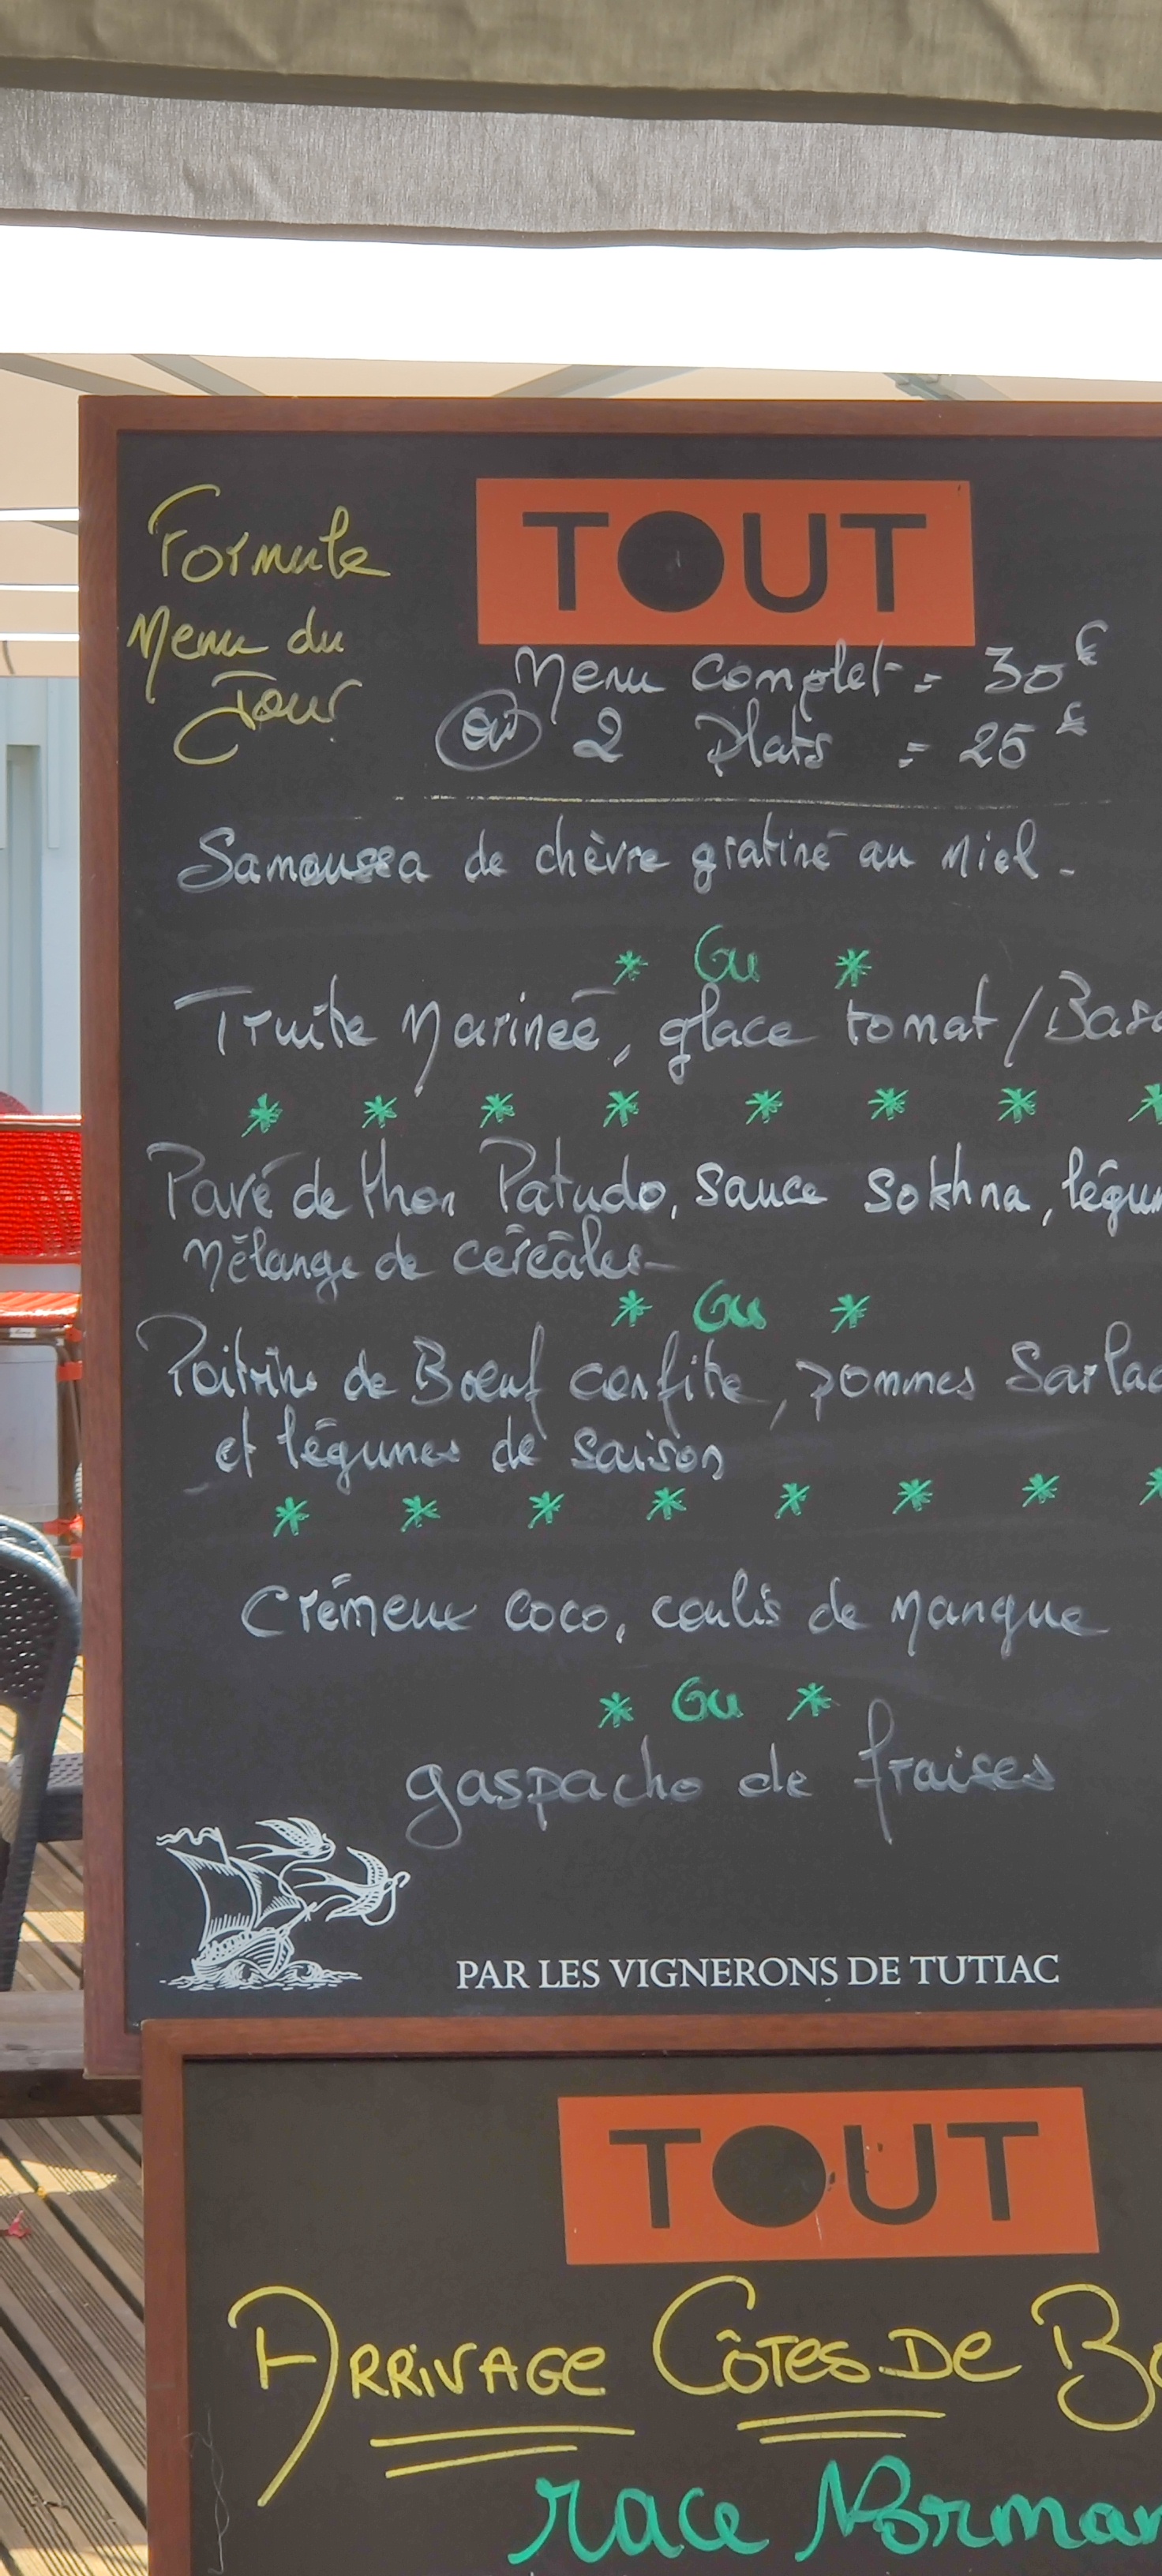 Formule
Menu du
Jour
TOUT
Menu complet = 30€
ou 2 Plats = 25€
Samoussa de chèvre gratiné au miel.
* Ou *
Truite Marinée, glace tomat/Bas
* * * * * * * *
Pavé de thon Patudo, sauce sokhna, légu
Mélange de céréales
* Ou *
Poitrine de Bœuf confite, pommes Sarla
et légumes de saison
* * * * * * * *
Crémeux coco, coulis de mangue
* Ou *
gaspacho de fraises
PAR LES VIGNERONS DE TUTIAC
TOUT
ARRIVAGE CÔTES DE B
race Norman